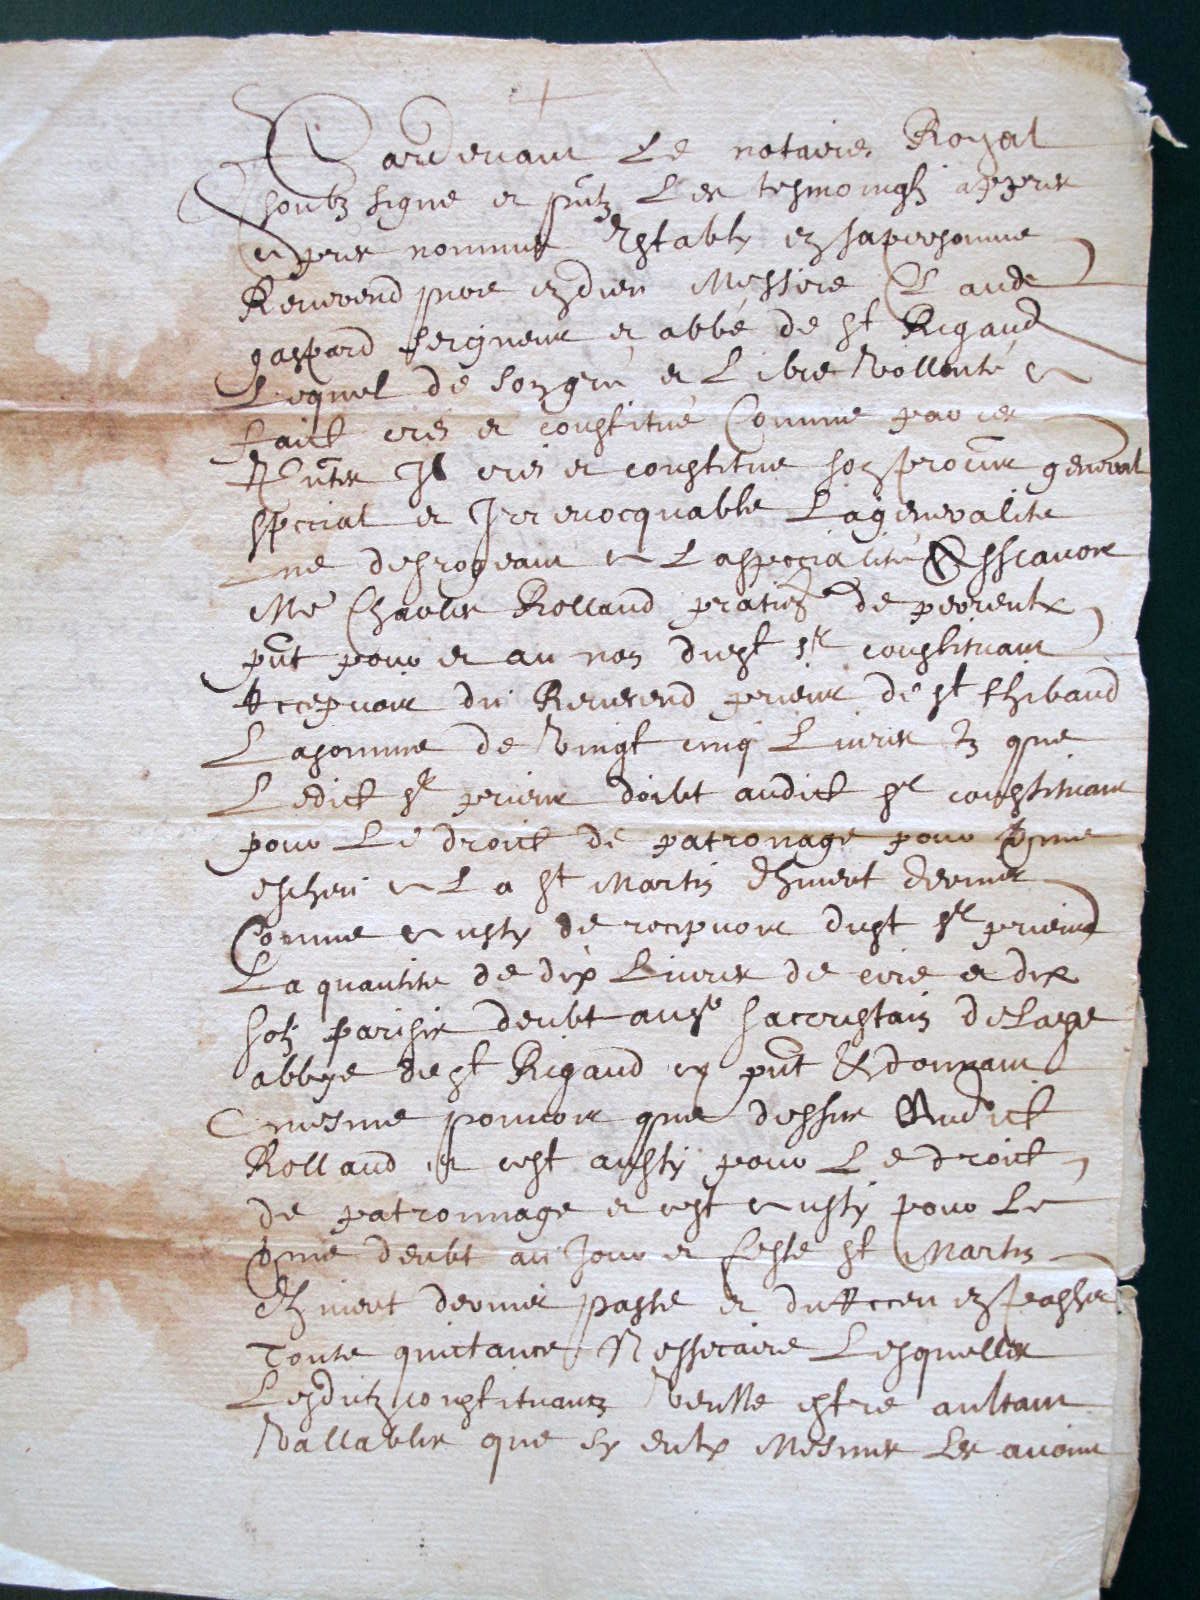 Pardevant Le notaire Royal
soubz signe et pntz Les tesmoingtz appres
nommes Establi en sa personne
Reverend pere en dieu Messire Claude
gaspard seigneur et abbé de st Rigaud
Lequel de son gre et Libre Vollonté a
faict cree et constitué Comme par ces
pntes Il cree et constitue son procur general
special et Irrevocquable La generalite
ne desrogeant a La specialité Asscavoir
Me Charles Rolland praticn de
pnt pour et au nom dudt sr constituant
Recepvoir du Reverend prieur de st thibaud
La somme de Vingt cinq Livres tz que
Ledict sr prieur doibt audict sr constituant
pour Le droict de patronage pour terme
escheu a La st Martin dhivert dernier
Comme aussy de recepvoir dudt sr prieur
La quantite de dix Livres de cire et dix
solz parisis deubt au sr sacerstain de Lad
abbaye de st Rigaud cy pnt Et donnant
mesme pouvoir que dessus Audict
Rolland et cest aussy pour Le droict
de patronnage et cest aussy pour Le
terme deubt au Jour et feste st Martin
dhivert dernier passe et du Receu en passer
Toute quictance Nessecaire Lesquelles
Lesdictz constituantz Veulle estre aultant
Vallables que sy eulx Mesmes Les avoint